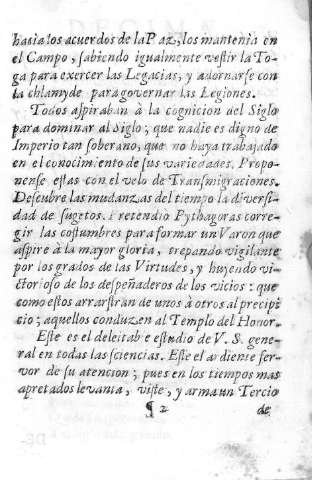 hasta los acuerdos de la Paz, los mantenia en
el Campo, sabiendo igualmente vestir la To-
ga para exercer las Legacias, y adornarse con
la chlamyde para governar las Legiones.
Todos aspiraban à la cognicion del Siglo
para dominar al Siglo; que nadie es digno de
Imperio tan soberano, que no haya trabajado
en el conocimiento de sus variedades. Propo-
nense estas con el velo de Transmigraciones.
Descubre las mudanzas del tiempo la diversi-
dad de sugetos. Pretendio Pythagoras corre-
gir las costumbres para formar un Varon que
aspire à la mayor gloria, trepando vigilante
por los grados de las Virtudes, y huyendo vi-
ctorioso de los despeñaderos de los vicios: que
como estos arrastran de unos à otros al precipi-
cio; aquellos conduzen al Templo del Honor.
Este es el deleitable estudio de V. S. gene-
ral en todas las sciencias. Este el ardiente fer-
vor de su atencion; pues en los tiempos mas
apretados levanta, viste, y arma un Tercio
¶ 2 de